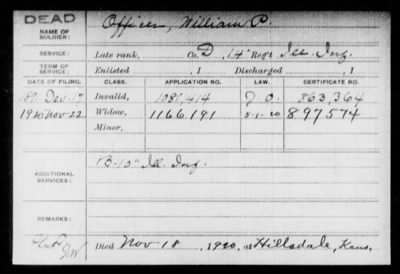 DEAD
NAME OF SOLDIER: Officer, William P.
SERVICE: Late rank, Co. D, 14" Reg't Ill. Inf.
TERM OF SERVICE: Enlisted , 1 Discharged , 1
DATE OF FILING. CLASS. APPLICATION NO. LAW. CERTIFICATE NO.
189 Dec. 17 Invalid, 1081,414 G.O. 863,364
1920 Nov 22 Widow, 1166191 5-1-20 897574
Minor,
ADDITIONAL SERVICES: B-10" Ill. Inf.
REMARKS:
Died Nov 18, 1920, at Hillsdale, Kans.